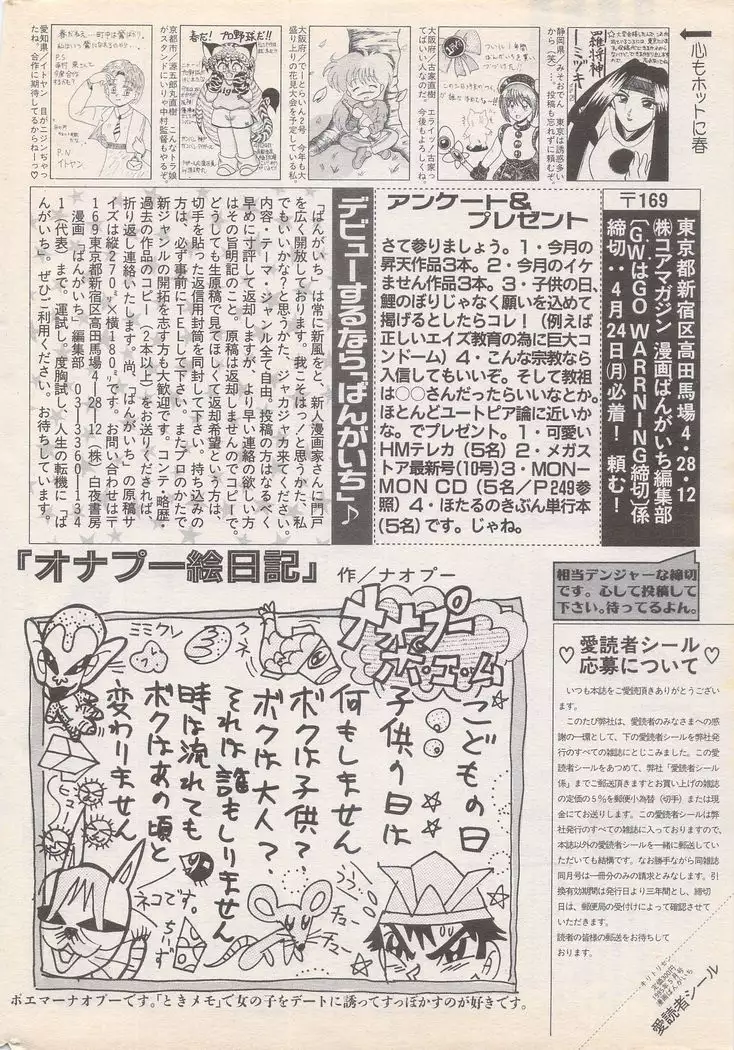 ↑心もホットに春
羅将神
ーミッキー
静岡県/みそおでん 東京は誘惑多い
から…(笑)…。投稿も忘れずに頼むぞ。
ついに1年間
大阪府/古家直樹 エライッ!古家っ
てばいいこ。 今後もよろしくね。
大阪府/でーとらいん2号 今年も大
盛り上りの花見大会を予定している私。
春だ! プロ野球だ!!
京都市/源五郎丸直樹 こんなトラ娘
がスタンドにいりゃ中村監督もやるぞ。
P.S
P.N
イトヤン
愛知県/イトヤン 目がニジンぢゃっ
たね。 合作に期待してるからねーっ♡
〒169
東京都新宿区高田馬場4・28・12
㈱コアマガジン 漫画ばんがいち編集部
〔GWはGO WARRNING締切〕係
締切‥4月24日(月)必着! 頼む!
アンケート&
プレゼント
さて参りましょう。1・今月の
昇天作品3本。2・今月のイケ
ません作品3本。3・子供の日、
鯉のぼりじゃなく願いを込めて
掲げるとしたらコレ!(例えば
正しいエイズ教育の為に巨大コ
ンドーム)4・こんな宗教なら
入信してもいいぞ。そして教祖
は○○さんだったらいいなとか。
ほとんどユートピア論に近いか
な。でプレゼント。1・可愛い
HMテレカ(5名)2・メガス
トア最新号(10号)3・MON-
MON CD(5名/P249参
照)4・ほたるのきぶん単行本
(5名)です。じゃね。
デビューするなら「ばんがいち」♪
「ばんがいち」は常に新風をと、新人漫画家さんに門戸
を広く開放しております。我こそはっ!と思うかた、私
でもいいかな?と思うかた、ジャカジャカ来てください。
内容・テーマ・ジャンル全て自由。投稿の方はなるべく
早めに寸評して返却しますが、より早い連絡の欲しい方
はその旨明記のこと。原稿は返却しませんのでコピーで。
どうしても生原稿で見てほしくて返却希望という方は、
切手を貼った返信用封筒を同封して下さい。持ち込みの
方は、必ず事前にTELして下さい。またプロのかたで
新ジャンルの開拓を志す方も大歓迎です。コンテ・略歴・
過去の作品のコピー(2本以上)をお送りくだされば、
折り返し連絡いたします。尚、「ばんがいち」の原稿サ
イズは縦270㍉×横180㍉です。お問い合わせは〒
169東京都新宿区高田馬場4―28―12㈱ 白夜書房
漫画「ばんがいち」編集部 03―3360―134
1(代表)まで。運試し。度胸試し。人生の転機に「ば
んがいち」。ぜひご利用ください。お待ちしています。
相当デンジャーな締切
です。心して投稿して
下さい。待ってるよん。
「オナプー絵日記」 作/ナオプー
ナオプー
ポエーム
こどもの日
子供の日は
何もしません
ボクは子供?
ボクは大人?
それは誰もしりません
時は流れても
ボクはあの頃と
変わりません
ミミクレ
クネ
ヒュー
ネコです。
ちーず
チュー
チュー
ポエマーナオプーです。「ときメモ」で女の子をデートに誘ってすっぽかすのが好きです。
♡愛読者シール♡
応募について
いつも本誌をご愛読頂きありがとうござい
ます。
このたび弊社は、愛読者のみなさまへの感
謝の一環として、下の愛読者シールを弊社発
行のすべての雑誌にとじこみました。この愛
読者シールをあつめて、弊社「愛読者シール
係」までご郵送頂きますとお買い上げの雑誌
の定価の5%を郵便小為替(切手)または現
金にてお送りします。この愛読者シールは弊
社発行のすべての雑誌に入っておりますので、
本誌以外の愛読者シールを一緒に郵送してい
ただいても結構です。なお勝手ながら同雑誌
同月号は一冊分のみの請求とみなします。引
換有効期間は発行日より三年間とし、締切
日は、郵便局の受付けによって確認させて
いただきます。
読者の皆様の郵送をお待ちして
おります。
キリトリセン
定価300円
1995年5月号
漫画ばんがいち
愛読者シール